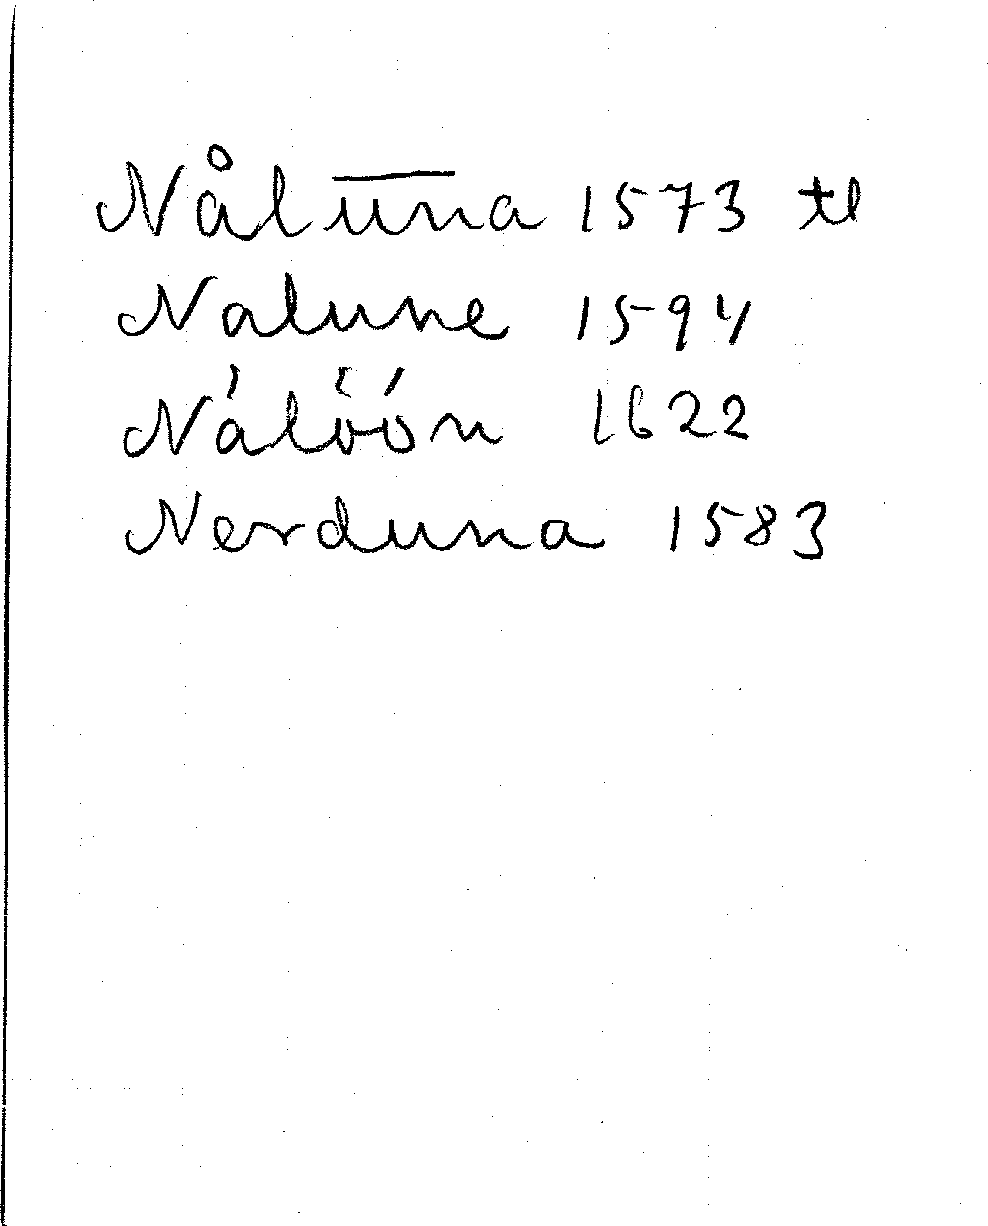 Nålūna 1573 tl
Nalune 1594
Nálöón 1622
Nerduna 1583